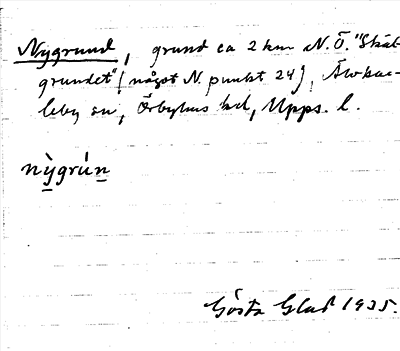 Nygrund, grund ca 2 km N.Ö. "Skat-
grundet" (något N. punkt 24), Älvkar-
leby sn, Örbyhus hd, Upps. l.
nỳgrún
Gösta Glad 1935.